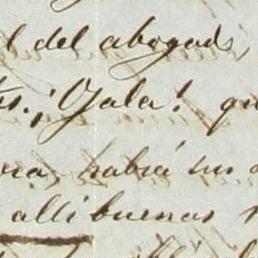 l del abogado,
tes. ¡Ojala! qu
ra, habia un
alli buenas